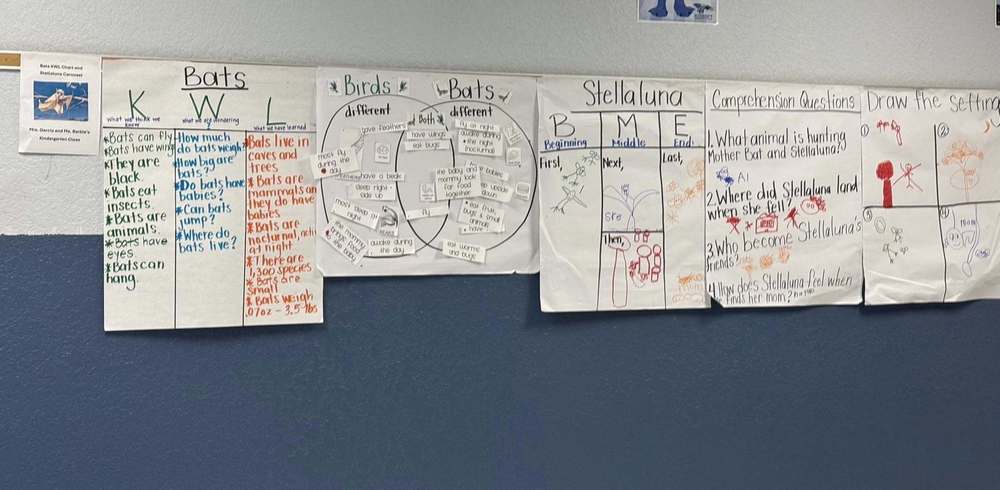 Bats KWL Chart and
Stellaluna Carousel
Kindergarten Class
Bats
K
What we think we
know
*Bats can fly
*Bats have wing
*They are
black
*Bats eat
insects.
*Bats are
animals.
*Bats have
eyes.
*Bats can
hang.
W
what we are wondering
*How much
do bats weigh
*How big are
bats?
*Do bats have
babies?
*Can bats
jump?
*Where do
bats live?
L
What we have learned
*Bats live in
caves and
trees
*Bats are
mammals an
they do have
babies
*Bats are
nocturnal, acti
at night
*There are
1,300 species
*Bats are
small
*Bats weigh
.07oz - 3.5 lbs
Birds
different
have feathers
most fly
during the
day
have a beak
sleep right
side up
most sleep at
night
awake during
the day
Both
have wings
eat bugs
fly
Bats
different
fly at night
awake during
the night
(nocturnal)
eat worms
and bugs
Stellaluna
B
Beginning
First,
M
Middle
Next,
Then,
E
End
Last,
Comprehension Questions
1. What animal is hunting
Mother Bat and Stellaluna?
2. Where did Stellaluna land
when she fell?
3. Who become Stellaluna's
friends?
4. How does Stellaluna feel when
finds her mom?
Draw the setting
1
2
3
4